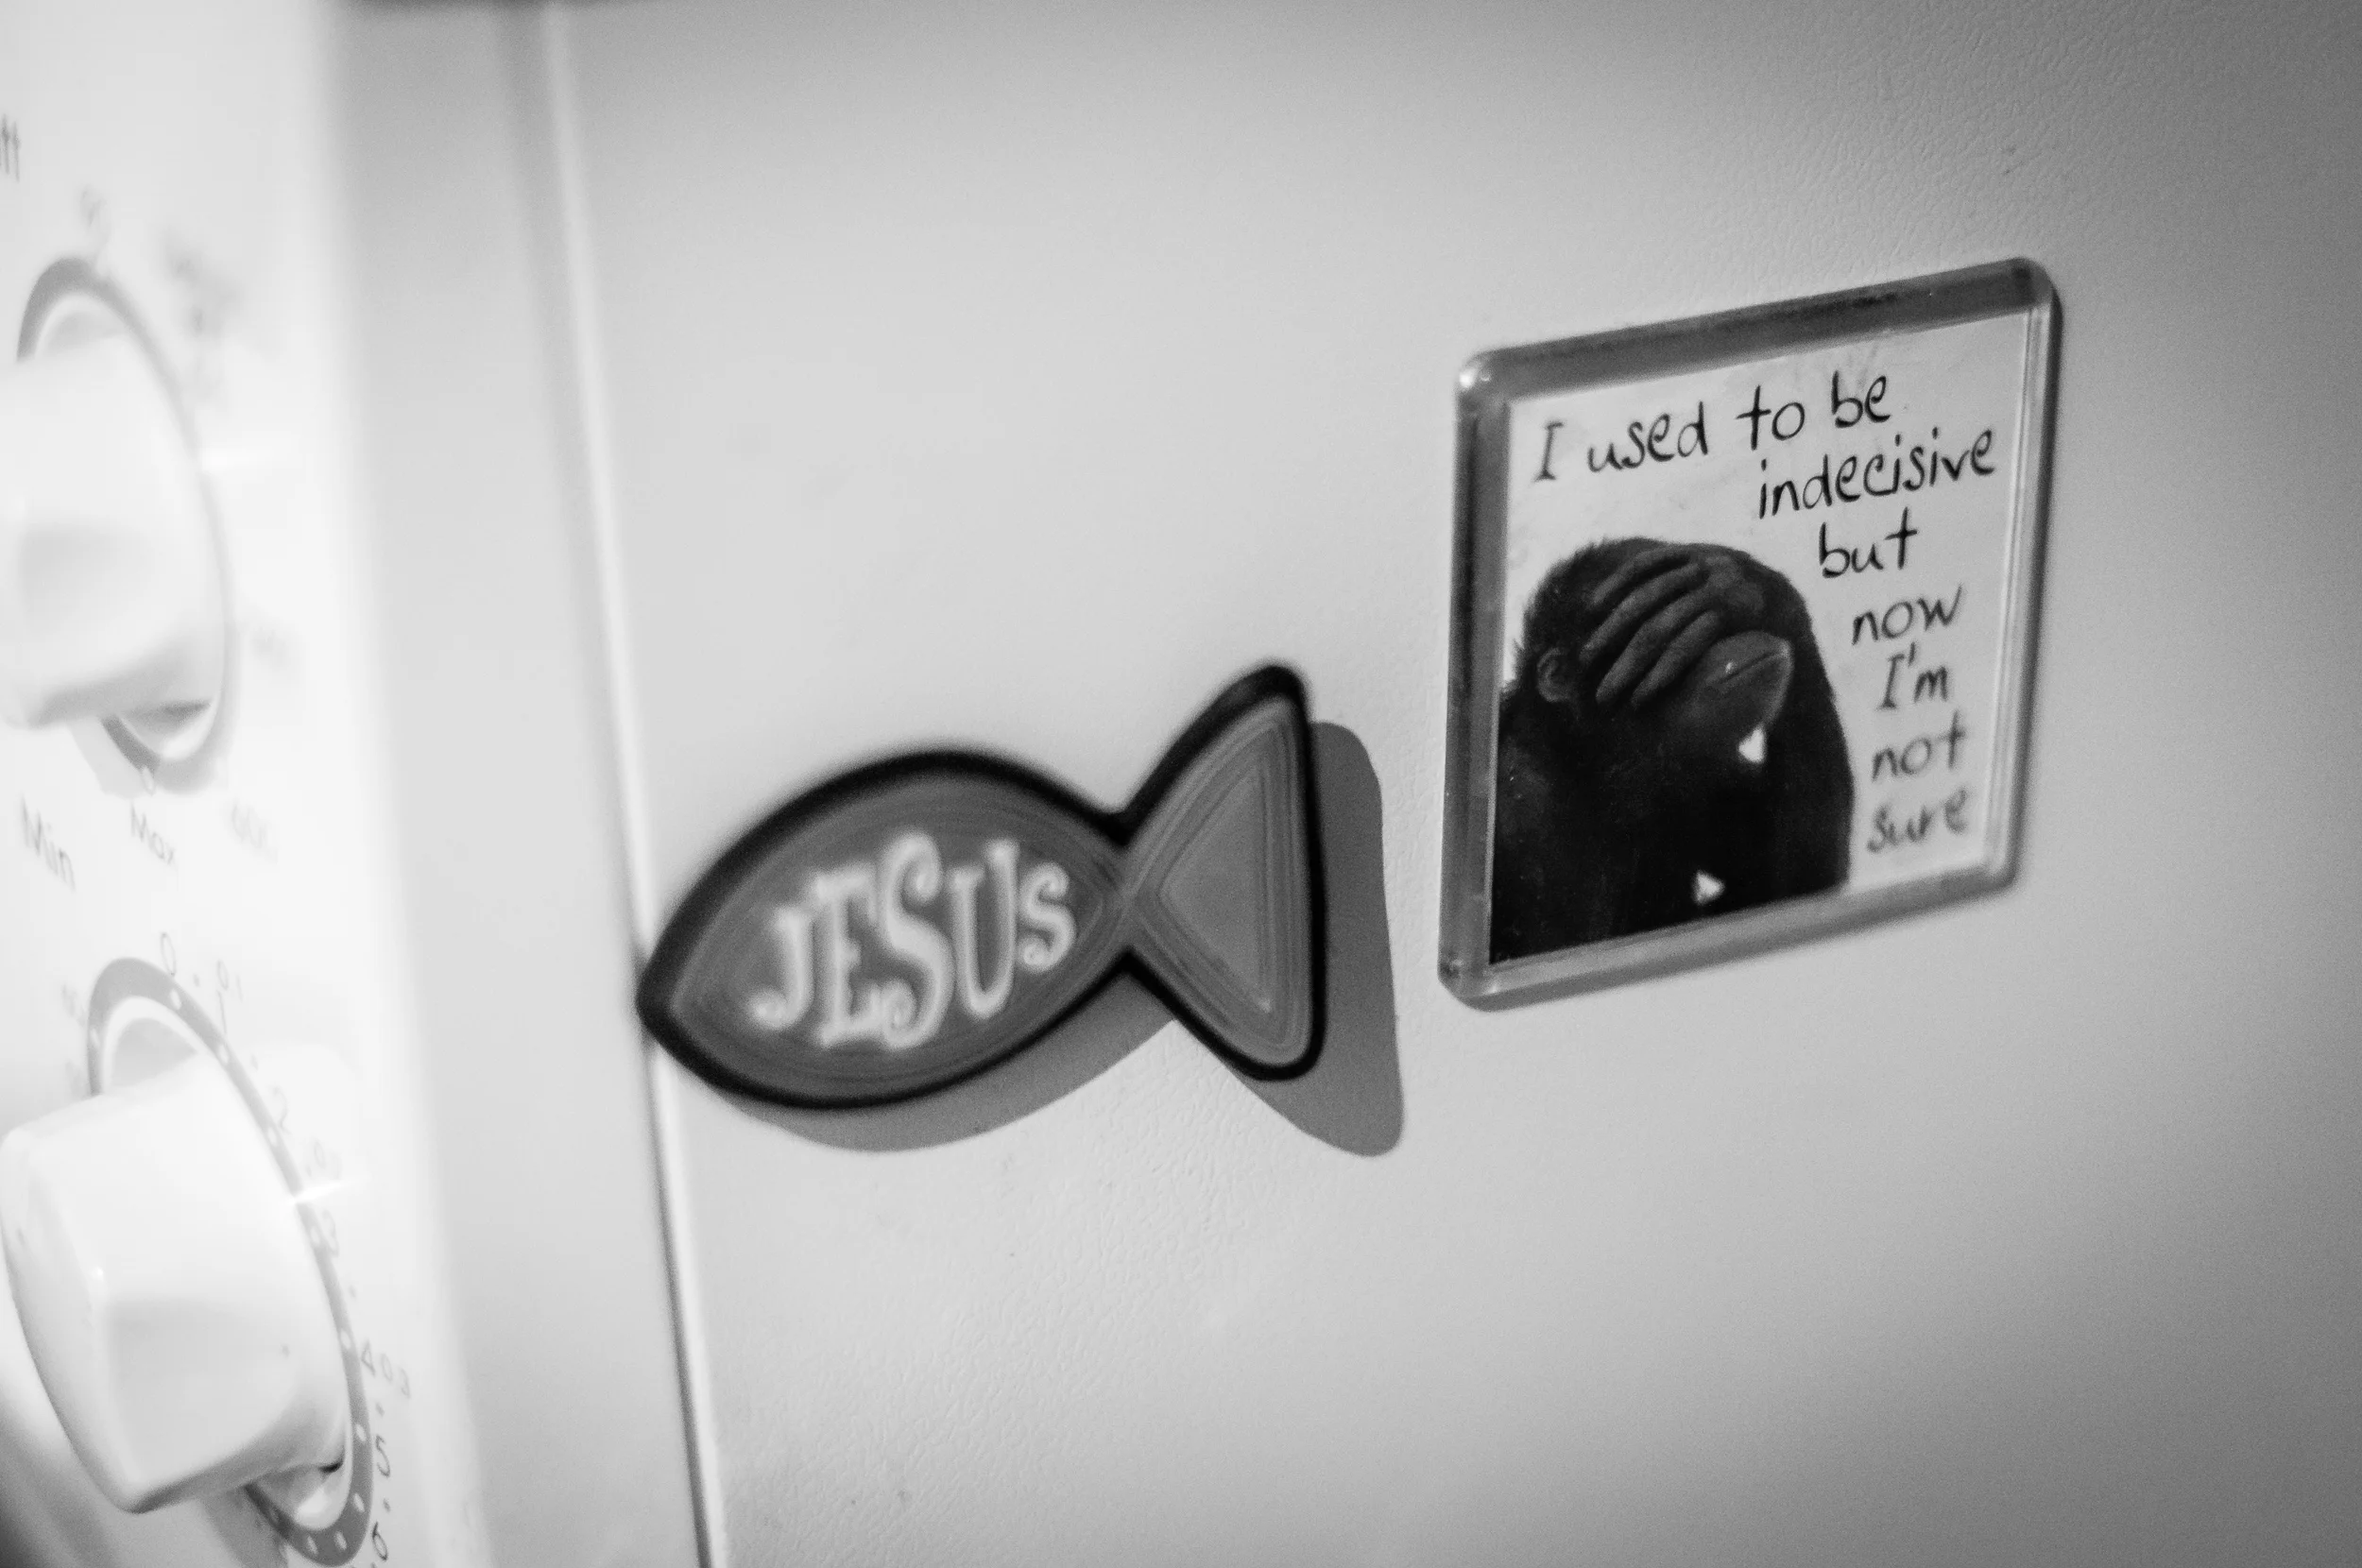 Min
Max
0
1
2
3
4
5
6
JESUS
I used to be
indecisive
but
now
I'm
not
sure